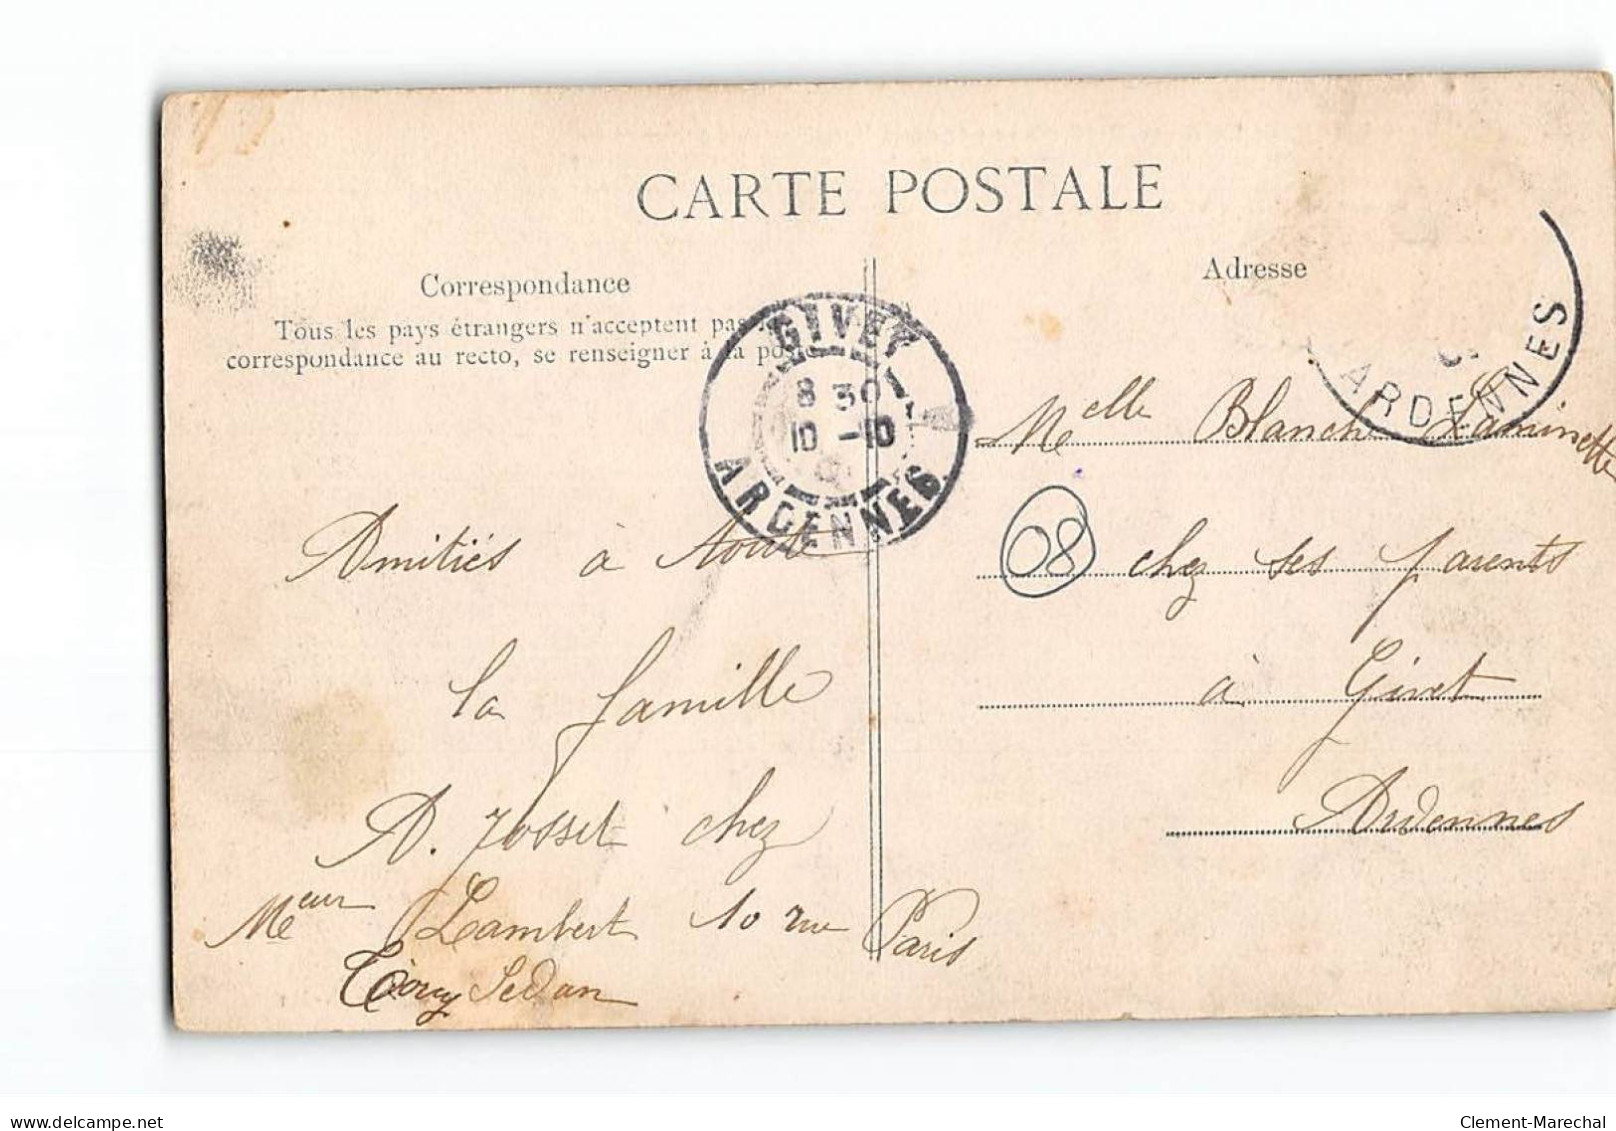 CARTE POSTALE
Correspondance
Tous les pays étrangers n'acceptent pas la
correspondance au recto, se renseigner à la poste
Adresse
GIVET
8 30
10 -10
ARDENNES
ARDENNES
Melle Blanche Laminette
08
chez ses parents
à Givet
Ardennes
Amitiés à toute
la famille
A. Josset chez
Meeur Lambert 10 rue Paris
Torcy Sedan
www.delcampe.net
Clement-Marechal